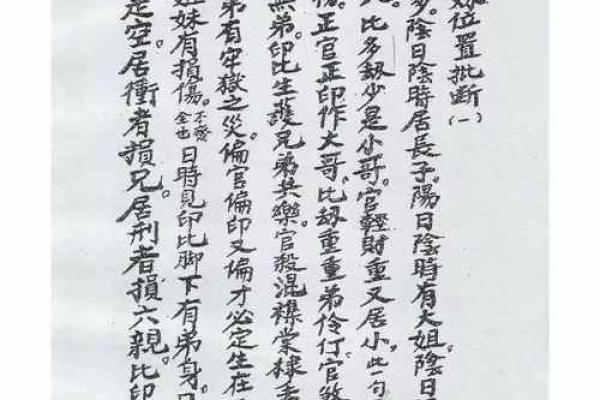 妹位置批斷(一)
多。陰日陰時居長子。陽日陰時有大姐。陰日
比多劫少是小哥。官輕財重又居小。此一句
傷。正官正印作大哥。比劫重重弟伶仃。官煞
無弟。印比生護兄弟共樂。官殺混襍棠棣
弟有牢獄之災。偏官偏印又偏才。必定生在
姐妹有損傷。不發全也日時見印比腳下有弟身。
是空。居衝者損兄。居刑者損六親。比印